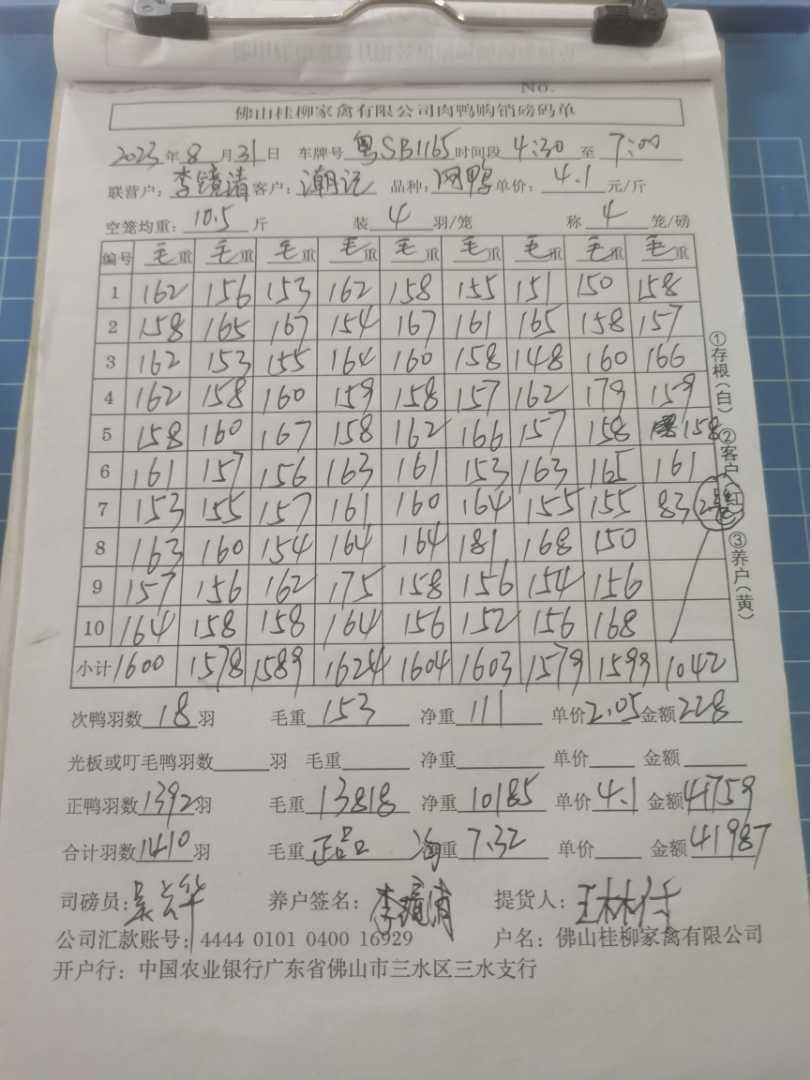 No.
佛山桂柳家禽有限公司肉鸭购销磅码单
2023年8月31日 车牌号粤SB1165时间段4:30至7:00
联营户:李镜清客户:潮记 品种:网鸭单价:4.1元/斤
空笼均重:10.5斤 装4羽/笼 称4笼/磅
编号 毛重 毛重 毛重 毛重 毛重 毛重 毛重 毛重 毛重
1 162 156 153 162 158 155 151 150 158
2 158 165 167 154 167 161 165 158 157
3 162 153 155 164 160 158 148 160 166
4 162 158 160 159 158 157 162 179 159
5 158 160 167 158 162 166 157 158 158
6 161 157 156 163 161 153 163 165 161
7 153 155 157 161 160 164 155 155 83
8 163 160 154 164 164 181 168 150
9 157 156 162 175 158 156 154 156
10 164 158 158 164 156 152 156 168
小计 1600 1578 1589 1624 1604 1603 1579 1599 1042
①存根(白)②客户(红)③养户(黄)
次鸭羽数18羽 毛重153 净重111 单价2.05金额228
光板或叮毛鸭羽数 羽 毛重 净重 单价 金额
正鸭羽数1392羽 毛重13818 净重10185 单价4.1金额41759
合计羽数1410羽 毛重正品 净重7.32 单价 金额41987
司磅员: 养户签名:李镜清 提货人:
公司汇款账号:4444 0101 0400 16929 户名:佛山桂柳家禽有限公司
开户行:中国农业银行广东省佛山市三水区三水支行